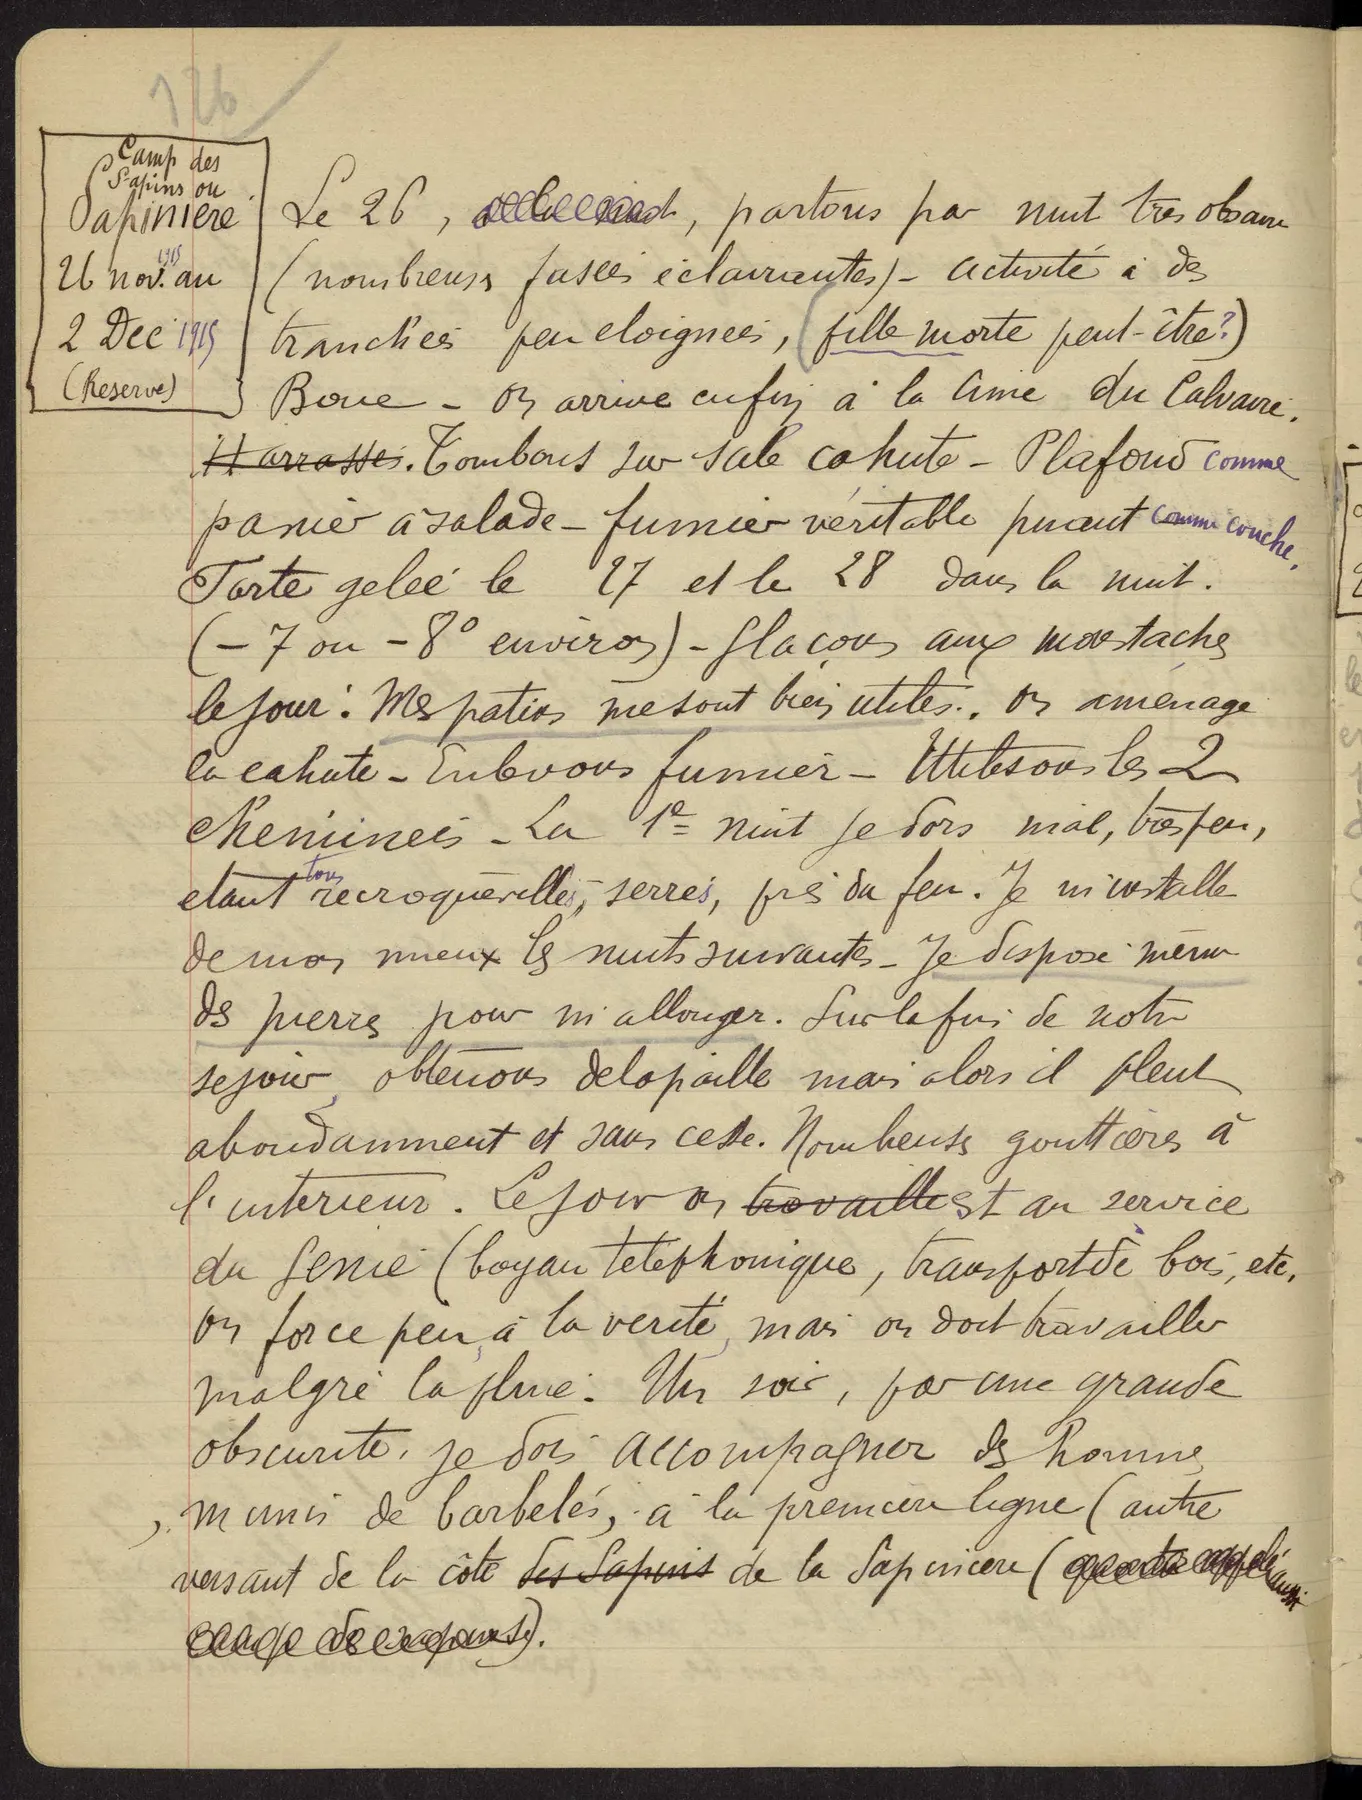 126
Camp des
Sapins ou
Sapinière
26 nov. 1915 au
2 Dec 1915
(Reserve)
Le 26, , partons par nuit très obscure
(nombreuses fusées éclairantes) - activité à des
tranchées peu eloignées, (fille morte peut-être?)
Boue - On arrive enfin à la Cime du Calvaire.
Harassés. Tombons sur sale cahute - Plafond comme
panier à salade - fumier véritable puant comme couche.
Forte gelée le 27 et le 28 dans la nuit.
(- 7 ou - 8° environ) - Glaçons aux moustaches
le jour! Mes patins me sont bien utiles.. On aménage
la cahute - Enlevons fumier - Utilisons les 2
cheminées - La 1e nuit je dors mal, très peu,
etant tous recroquevillés, serrés, près du feu. Je m'installe
de mon mieux les nuits suivantes - Je dispose même
des pierres pour m'allonger. Sur la fin de notre
sejour, obtenons de la paille mais alors il pleut
abondamment et sans cesse. Nombreuses gouttières à
l'interieur. Le jour on travaille est au service
du Genie (boyau téléphonique, transport de bois, etc.
On force peu, à la verité, mais on doit travailler
malgré la pluie. Un soir, par une grande
obscurité, je dois accompagner des hommes
munis de barbelés, à la première ligne (autre
versant de la côte des Sapins de la Sapinière (
).